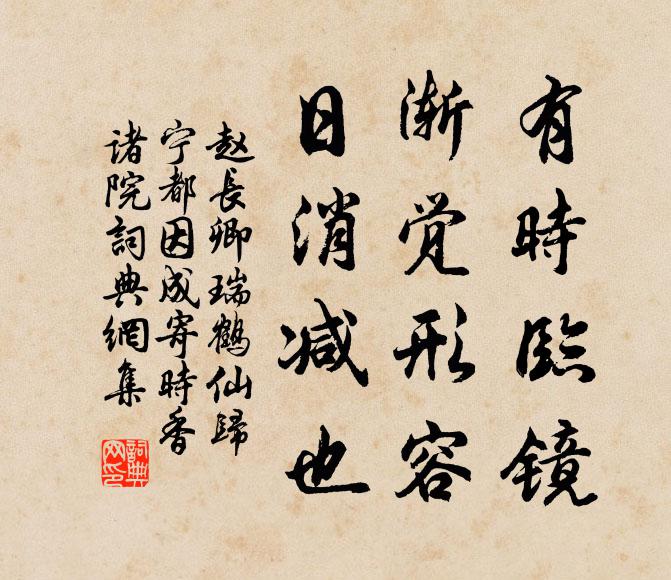 有時臨镜
渐觉形容
日消减也
赵長卿瑞鶴仙歸
宁都因成寄時香
诸院詞典網集
詞典
网印